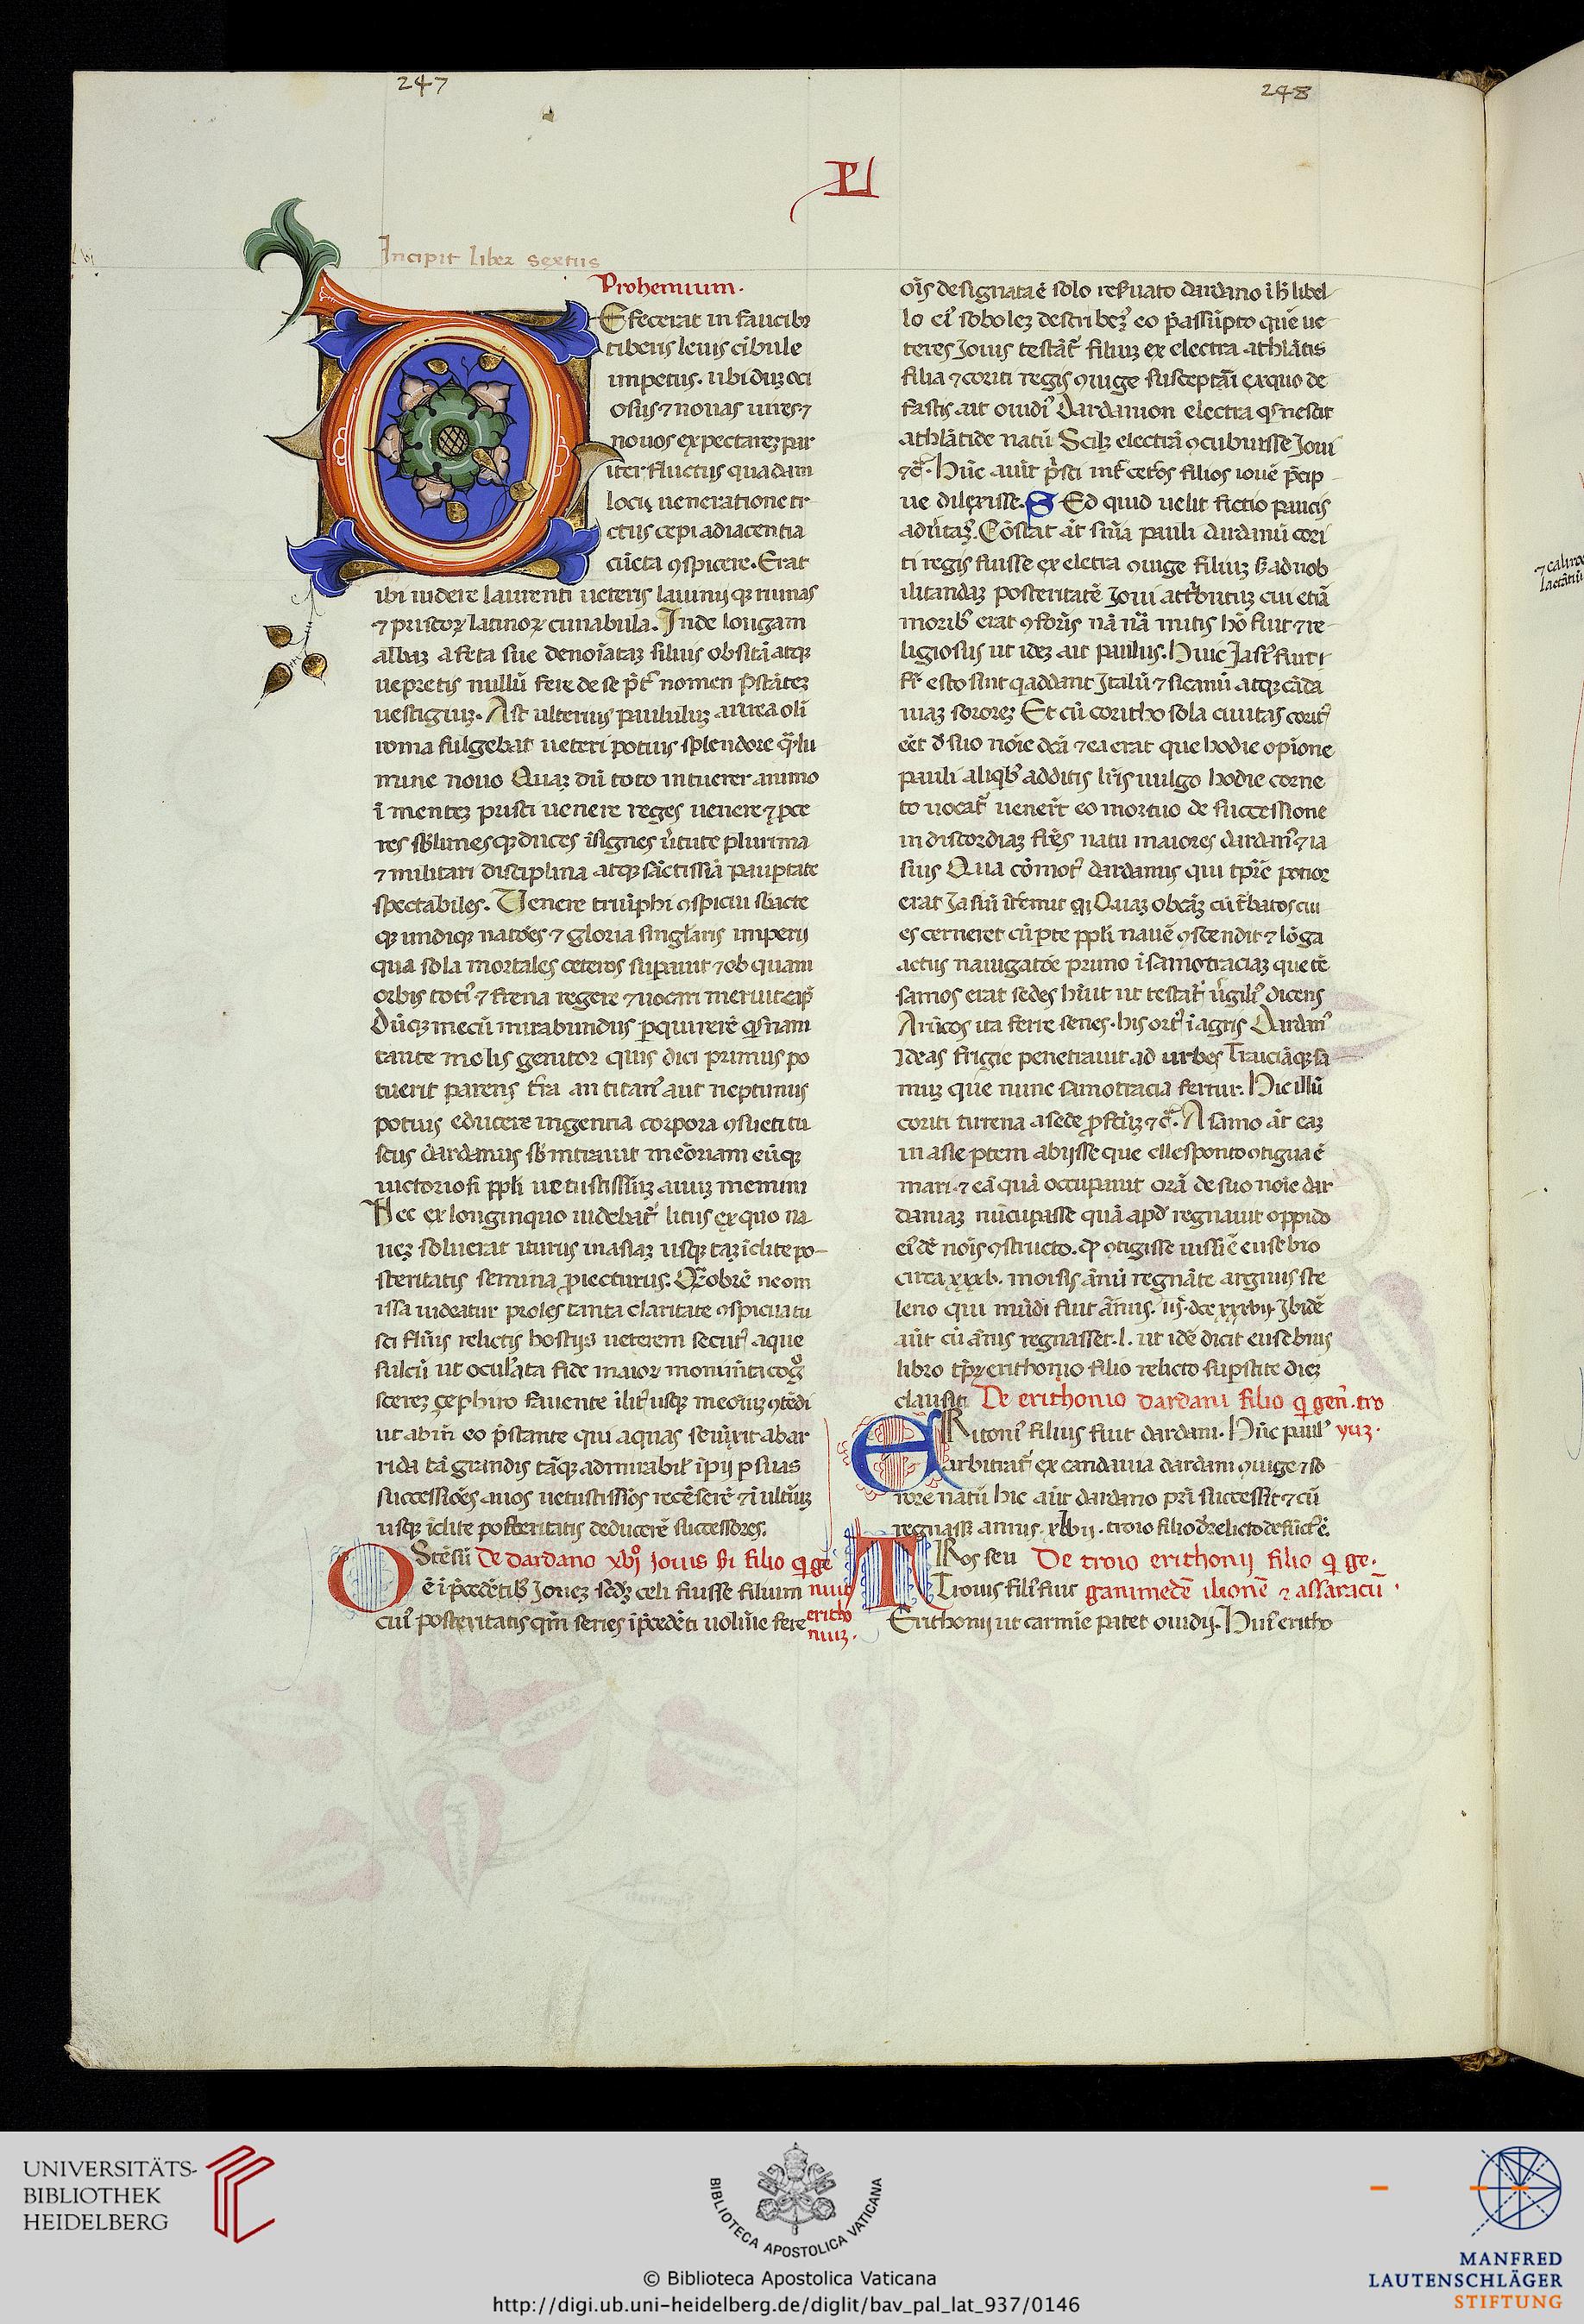 247
248
Incipit liber sextus
Prohemium.
Efecerat in faucibꝫ
tiberis leuis cibule
impetus. ubi duꝫ oci
osus ⁊ nouas uires ⁊
nouos expectareꝫ par
iter fluctus quadam
loci ueneratione tr
ctus cepi adiacentia
cūcta ꝯspicere. Erat
ibi uidere laurenti ueteris lauinijqꝫ ruinas
⁊ priscoꝝ latinoꝝ cunabula. Inde longam
albaꝫ a feta sue denoīataꝫ siluis obsitā atqꝫ
uepretis nullū fere de se p̄t̄ nomen p̄stāteꝫ
uestigiuꝫ. Ast ulterius paululuꝫ aurea oli
roma fulgebat ueteri potius splendore qᷓꝫ lu
mine nouo Quaꝫ dū toto intuerer animo
ī menteꝫ prisci uenere reges uenere ⁊ ꝓce
res sblimesqꝫ duces īsignes ūtute plurima
⁊ militari disciplina atqꝫ sāctissīa paupertate
spectabiles. Uenere triūphi ꝯspicui sbacte
qꝫ undiqꝫ natōes ⁊ gloria singlaris imperij
qua sola mortales ceteros supauit ⁊ ob quam
orbis toti᾽ ⁊ frena regere ⁊ uocari meruit cap̄
Dūqꝫ mecū mirabundus ꝑquirerē qsnam
tante molis genitor quis dici primus po
tuerit parens t̄ra an titan᾽ aut neptunus
potius educere ingentia corpora ꝯsueti tu
scus dardanus sb intrauit meōriam eūqꝫ
uictoriosi ppli uetustissīuꝫ auuꝫ memini
Nec ex longinquo uidebat᾽ litus ex quo na
ueꝫ soluerat iturus in asiaꝫ usqꝫ taꝫ īclite po
steritatis semina ꝓiecturus. Qᷓobrē ne om
issa uideatur proles tanta claritate ꝯspicua tu
sci fluīs relictis hostijs ueterem secut᾽ aque
sulcū ut oculata fide maioꝝ monumta cog̊
scereꝫ cephiro fauente ilit᾽ usqꝫ
ut abin̄ eo p̄stante qui aquas abar
rida tā grandis tāqꝫ admirabil᾽ īpij ꝑ suas
successiōes auos uetustissīos recēserē ⁊ ī ultīuꝫ
usqꝫ īclite posteritatis deducerē successores.
Ostēsū De dardano xvj̊ Jouis sī filio q ge
ē ī p̄cedētibꝫ Joueꝫ scdꝫ celi fuisse filium nuit
cui᾽ posteritatis qm̄ series ī p̄cedēti uolūie fere erictho
niuꝫ.
oīs designata ē solo reseruato dardano ī h̄ libel
lo ei᾽ soboleꝫ describeꝫ eo p̄assūpto quē ue
teres Jouis testāt᾽ filiuꝫ ex electra athlātis
filia ⁊ coriti regis ꝯiuge susceptā ex quo de
fastis ait ouidi᾽ Dardanion electra qs nescit
athlātide natū Scilꝫ electrā ꝯcubuisse Joui
⁊c̄. Hūc aūt p̄sci int᾽ cetōs filios iouē p̄cip
ue dilexisse. SEd quid uelit fictio paucis
aduertaꝫ. Cōstat āt snīa pauli dardanū cori
ti regis fuisse ex eletra ꝯiuge filiuꝫ s; ad nob
ilitandaꝫ posteritatē Joui attributuꝫ cui etiā
moribꝫ erat ꝯforīs nā mitis hō fuit ⁊ re
ligiosus ut ideꝫ ait paulus. Huic Jasi᾽ fuit
fr̄ esto sint q addant Italū ⁊ sicanū atqꝫ cāda
uiaꝫ sororeꝫ Et cū coritho sola ciuitas corit᾽
eēt d̄ suo noīe dcā ⁊ ea erat que hodie opīone
pauli aliqbꝫ additis lrīs uulgo hodie corne
to uocat᾽ uenerūt eo mortuo de successione
in discordiaꝫ frēs natu maiores dardan᾽ ⁊ ia
sius Qua cōmot᾽ dardanus qui tpr̄e potior
erat Jasiū ītemit qi Quaꝫ obcāꝫ cū t᾽batos ciu
es cerneret cū ꝑte ppli nauē ꝯscendit ⁊ lōga
actus nauigatōe primo ī samotraciaꝫ que tē
samos erat sedes hūit ut testat᾽ ūgili᾽ dicens
Arūcos ita ferre senes. his ort᾽ ī agris Dardan᾽
ideas frigie penetrauit ad urbes Traciāqꝫ sa
muꝫ que nunc samotracia fertur. Hic illū
coriti tirrena a sede ꝓfctūꝫ ⁊c̄. A samo āt eaꝫ
in asie ꝑtem abijsse que ellesponto ꝯtigua ē
mari. ⁊ eā quā occupauit orā de suo noīe dar
daniaꝫ nūcupasse quā apd̄ regnauit oppido
ei᾽dē noīs ꝯstructo. qd̄ ꝯtigisse uisū ē eusebio
circa xxxv. moisis ānū regnāte argiuis ste
leno qui mūdi fuit ānus. iij. dcc xxxvij. Ibidē
aūt cū ānis regnasset .l. ut idē dicit eusebius
libro tp̄ꝝ erithonio filio relicto supstite dieꝫ
clausit De erithonio dardani filio q gen̄. tro
ERitoni᾽ filius fuit dardani. Hūc paul᾽ yuꝫ.
arbitrat᾽ ex candauia dardani ꝯiuge ⁊ so
rore natū hic aūt dardano pr̄i successit ⁊ cū
regnassꝫ annis. xlvij. troio filio relicto defūct᾽ ē.
TRos seu De troio erithonij filio q ge.
Troius fili᾽ fuit ganimedē ilionē ⁊ assaracū.
Erithonij ut carmīe patet ouidij. Hui᾽ eritho
UNIVERSITÄTS-
BIBLIOTHEK
HEIDELBERG
BIBLIOTECA APOSTOLICA VATICANA
© Biblioteca Apostolica Vaticana
http://digi.ub.uni-heidelberg.de/diglit/bav_pal_lat_937/0146
MANFRED
LAUTENSCHLÄGER
STIFTUNG